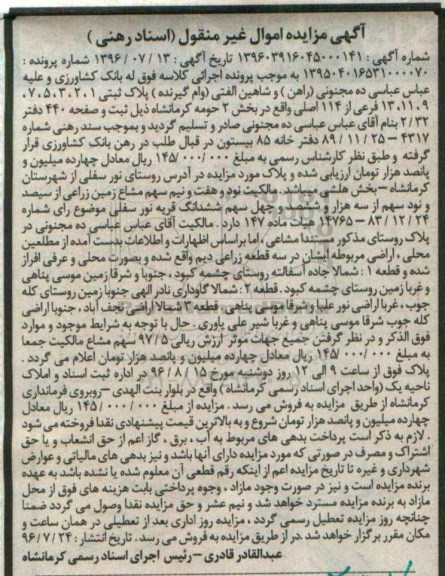 آگهی مزایده اموال غیر منقول (اسناد رهنی )
شماره آگهی : ۱۳۹۶۰۳۹۱۶۰۴۵۰۰۰۱۴۱ تاریخ آگهی : ۱۳ / ۰۷ / ۱۳۹۶ شماره پرونده :
۱۳۹۵۰۴۰۱۶۵۳۱۰۰۰۰۷۰ به موجب پرونده اجرائی کلاسه فوق له بانک کشاورزی و علیه
عباس عباسی ده مجنونی (راهن ) و شاهین الفتی (وام گیرنده ) پلاک ثبتی ۷،۵،۳،۲،۱،
۱۳،۱۱،۹ فرعی از ۱۱۴ اصلی واقع در بخش ۲ حومه کرمانشاه ذیل ثبت و صفحه ۴۴۰ دفتر
۲/۳۲ بنام آقای عباس عباسی ده مجنونی صادر و تسلیم گردید و بموجب سند رهنی شماره
۴۳۱۷ – ۲۵ / ۱۱ / ۸۹ دفتر خانه ۸۵ بیستون در قبال طلب در رهن بانک کشاورزی قرار
گرفته و طبق نظر کارشناس رسمی به مبلغ ۱۴۵/۰۰۰/۰۰۰ ریال معادل چهارده میلیون و
پانصد هزار تومان ارزیابی شده و پلاک مورد مزایده در آدرس روستای نور سفلی از شهرستان
کرمانشاه – بخش هلشی میباشد . مالکیت نود و هفت و نیم سهم مشاع زمین زراعی از سیصد
و نود سهم از سه هزار و ششصد و چهل سهم ششدانگ قریه نور سفلی موضوع رای شماره
۱۴۷۶۵ – ۸۳ / ۱۲ / ۲۴ هیات ماده ۱۴۷ دارد . مالکیت آقای عباس عباسی ده مجنونی در
پلاک روستای مذکور مستندا مشاعی ، اما براساس اظهارات و اطلاعات بدست آمده از مطلعین
محلی ، اراضی مربوطه ایشان در سه قطعه زراعی دیم واقع شده و بصورت محلی و عرفی افراز
شده و قطعه ۱ : شمالا جاده آسفالته روستای چشمه کبود ، جنوبا و شرقا زمین موسی پناهی
و غربا زمین روستای چشمه کبود . قطعه ۲ : شمالا گاوداری نادر الهی جنوبا زمین روستای کله
جوب ، غربا اراضی نور علیا و شرقا موسی پناهی . قطعه ۳ شمالا اراضی نجف آباد ، جنوبا اراضی
کله جوب شرقا موسی پناهی و غربا شیر علی یاوری . حال با توجه به شرایط موجود و موارد
فوق الذکر و در نظر گرفتن جمیع جهات موثر ارزش ریالی ۹۷/۵ سهم مشاع مالکیت جمعا
به مبلغ ۱۴۵/۰۰۰/۰۰۰ ریال معادل چهارده میلیون و پانصد هزار تومان اعلام می گردد .
پلاک فوق از ساعت ۹ الی ۱۲ روز دوشنبه مورخ ۱۵ / ۸ / ۹۶ در اداره ثبت اسناد و املاک
ناحیه یک (واحد اجرای اسناد رسمی کرمانشاه ) واقع در بلوار بنت الهدی – روبروی فرمانداری
کرمانشاه از طریق مزایده به فروش می رسد . مزایده از مبلغ ۱۴۵/۰۰۰/۰۰۰ ریال معادل
چهارده میلیون و پانصد هزار تومان شروع و به بالاترین قیمت پیشنهادی نقدا فروخته می شود
. لازم به ذکر است پرداخت بدهی های مربوط به آب ، برق ، گاز اعم از حق انشعاب و یا حق
اشتراک و مصرف در صورتی که مورد مزایده دارای آنها باشد و نیز بدهی های مالیاتی و عوارض
شهرداری و غیره تا تاریخ مزایده اعم از اینکه رقم قطعی آن معلوم شده یا نشده باشد به عهده
برنده مزایده است و نیز در صورت وجود مازاد ، وجوه پرداختی بابت هزینه های فوق از محل
مازاد به برنده مزایده مسترد خواهد شد و نیم عشر و حق مزایده نقدا وصول می گردد ضمنا
چنانچه روز مزایده تعطیل رسمی گردد ، مزایده روز اداری بعد از تعطیلی در همان ساعت و
مکان مقرر برگزار خواهد شد .در از طریق مزایده به فروش می رسد . تاریخ انتشار : ۲۴ / ۷ / ۹۶
عبدالقادر قادری – رئیس اجرای اسناد رسمی کرمانشاه